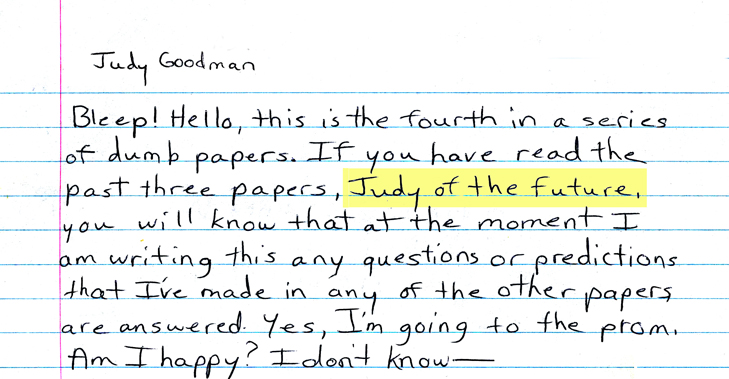 Judy Goodman
Bleep! Hello, this is the fourth in a series
of dumb papers. If you have read the
past three papers, Judy of the future,
you will know that at the moment I
am writing this any questions or predictions
that I've made in any of the other papers
are answered. Yes, I'm going to the prom.
Am I happy? I don't know—